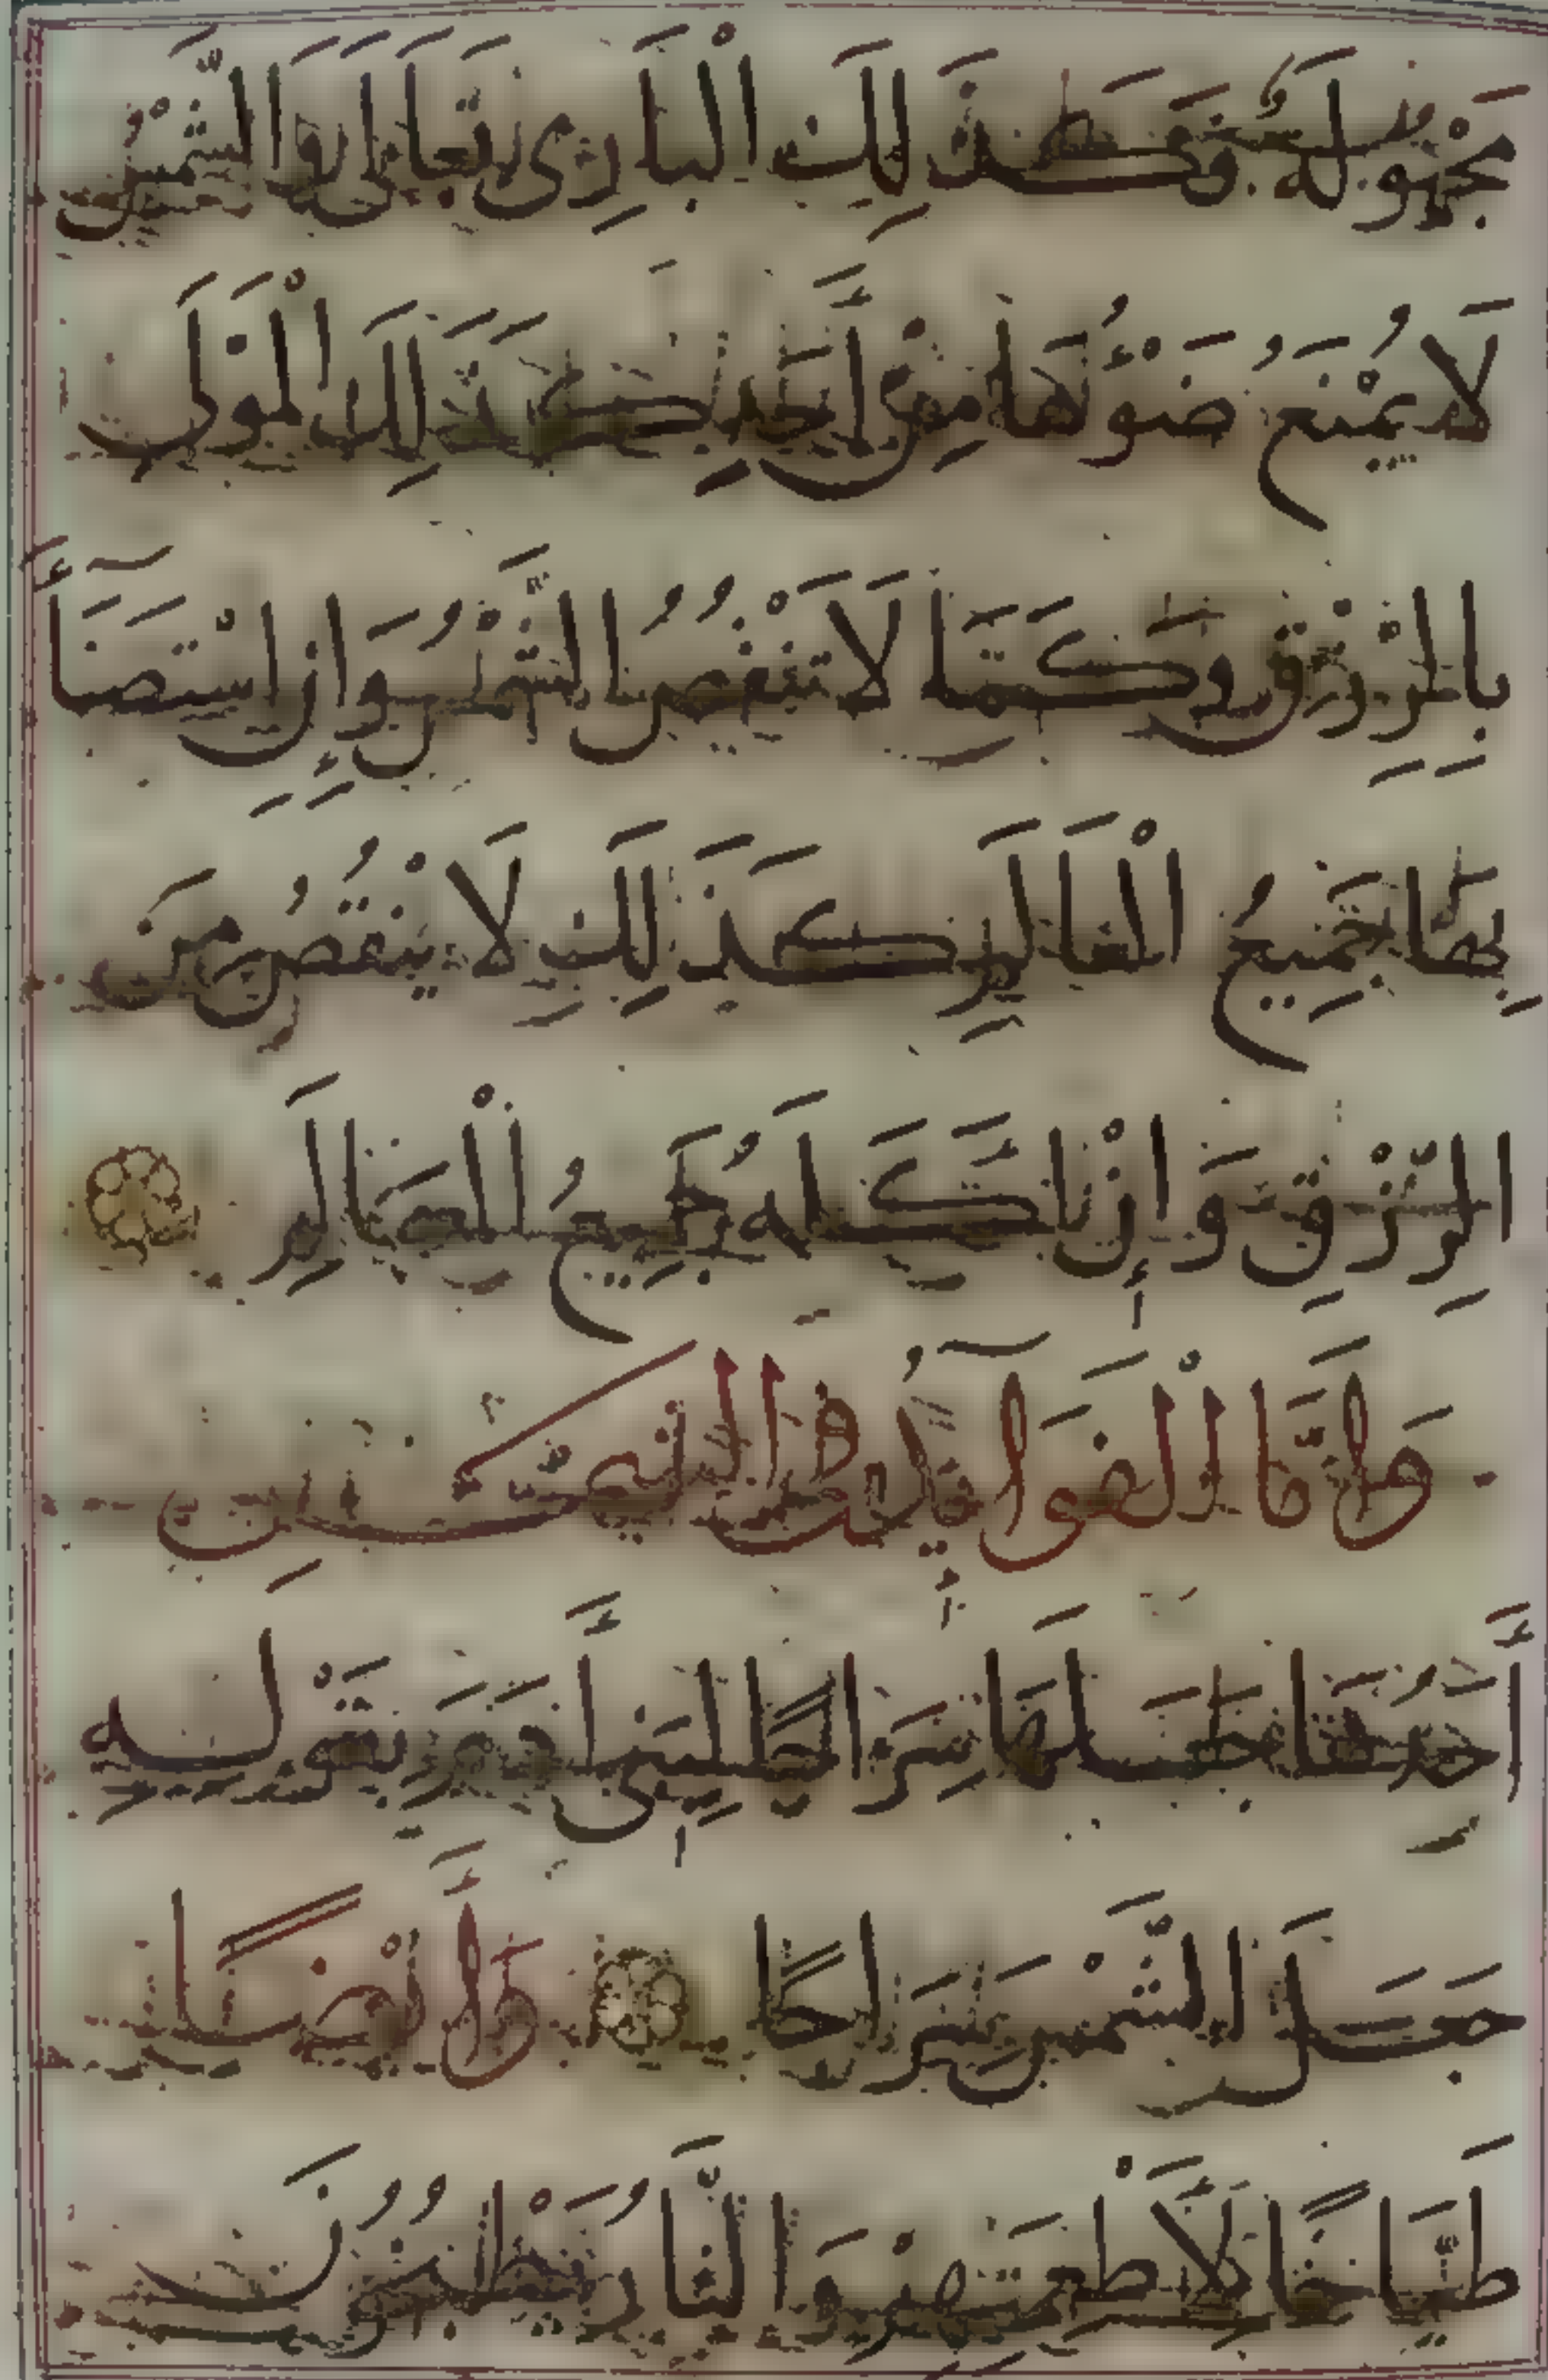 مَجْهُولَةٌ وَكَذَلِكَ الْبَارِي تَعَالَى وَالشَّمْسُ
لَا يُمْنَعُ ضَوْئُهَا مِنْ أَحَدٍ كَذَلِكَ الْمَوْلَى
بِالرِّزْقِ وَكَمَا لَا تَنْقُصُ الشَّمْسُ وَإِنِ اسْتَضَآءَ
بِهَا جَمِيعُ الْعَالَمِ كَذَلِكَ لَا يَنْقُصُ مِنَ
الرِّزْقِ وَإِنْ أَكَلَهُ جَمِيعُ الْعَالَمِ
وَأَمَّا الْفَوَآئِدُ
أَحَدُهَا جَعَلَهَا سِرَاجًا بِقَوْلِهِ
جَعَلَ الشَّمْسَ سِرَاجًا وَأَيْضًا
طَبَّاخًا لِأَطْعِمَتِهِمْ وَالنَّارُ